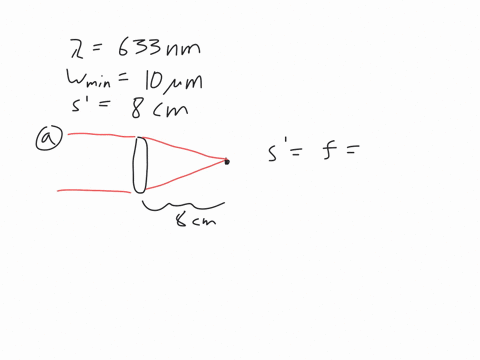 λ = 633 nm
Wmin = 10 μm
s' = 8 cm
a
s' = f =
8 cm